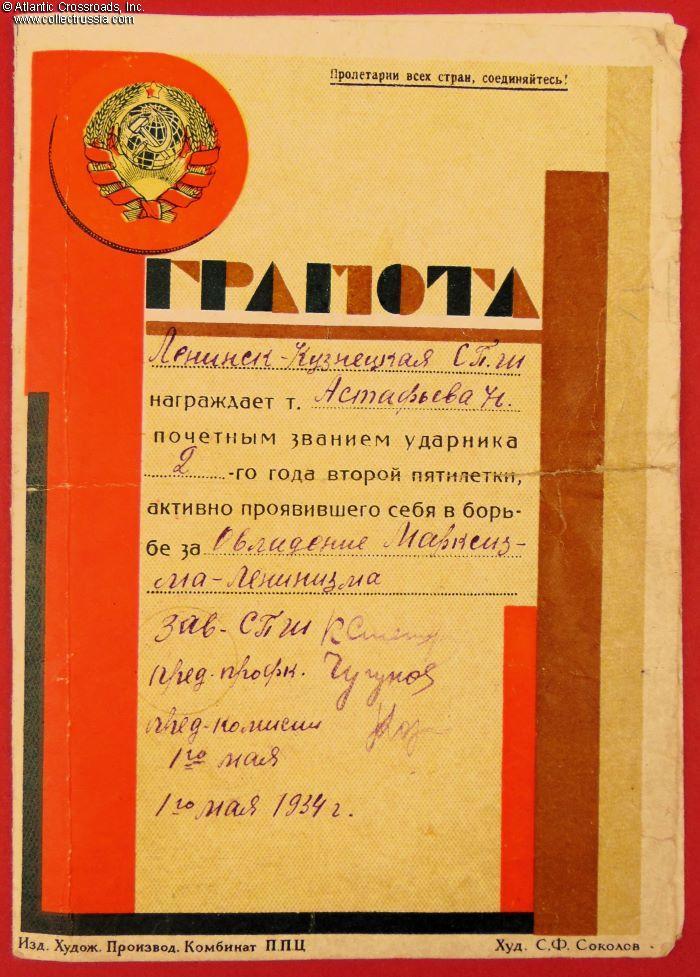 © Atlantic Crossroads, Inc.
www.collectrussia.com
Пролетарии всех стран, соединяйтесь!
ГРАМОТА
Ленинск-Кузнецкая СПШ
награждает т. Астафьева Н.
почетным званием ударника
2-го года второй пятилетки,
активно проявившего себя в борь-
бе за Овладение Марксиз-
ма-Ленинизма
Зав-СПШ
Пред. профк. Чугунов
Пред-комисии
1го мая
1го мая 1934 г.
Изд. Худож. Производ. Комбинат П.П.Ц
Худ. С.Ф. Соколов